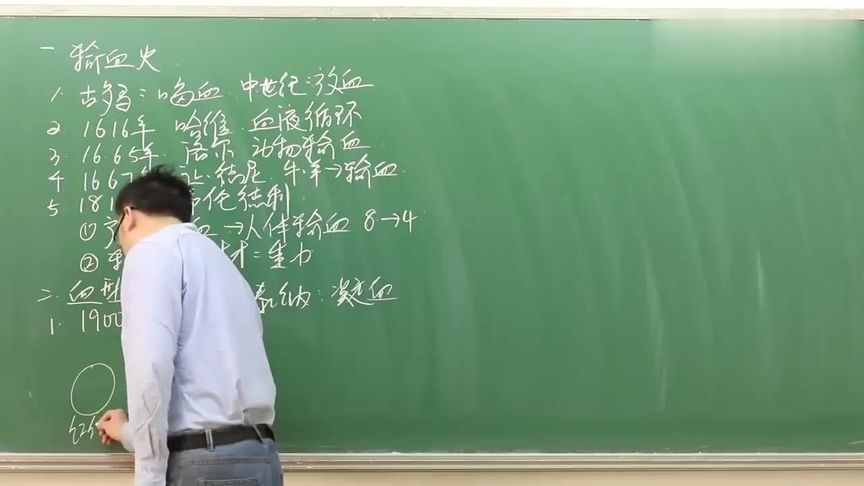 一 输血史
1. 古罗马:喝血 中世纪:放血
2 1616年 哈维 血液循环
3. 1665年. 洛尔 动物输血
4 1667 德尼 牛.羊→输血
5 181 德利
① 血→人体输血 8→4
② 输 =重力
二. 血型 泰纳:凝血
1. 1900
红